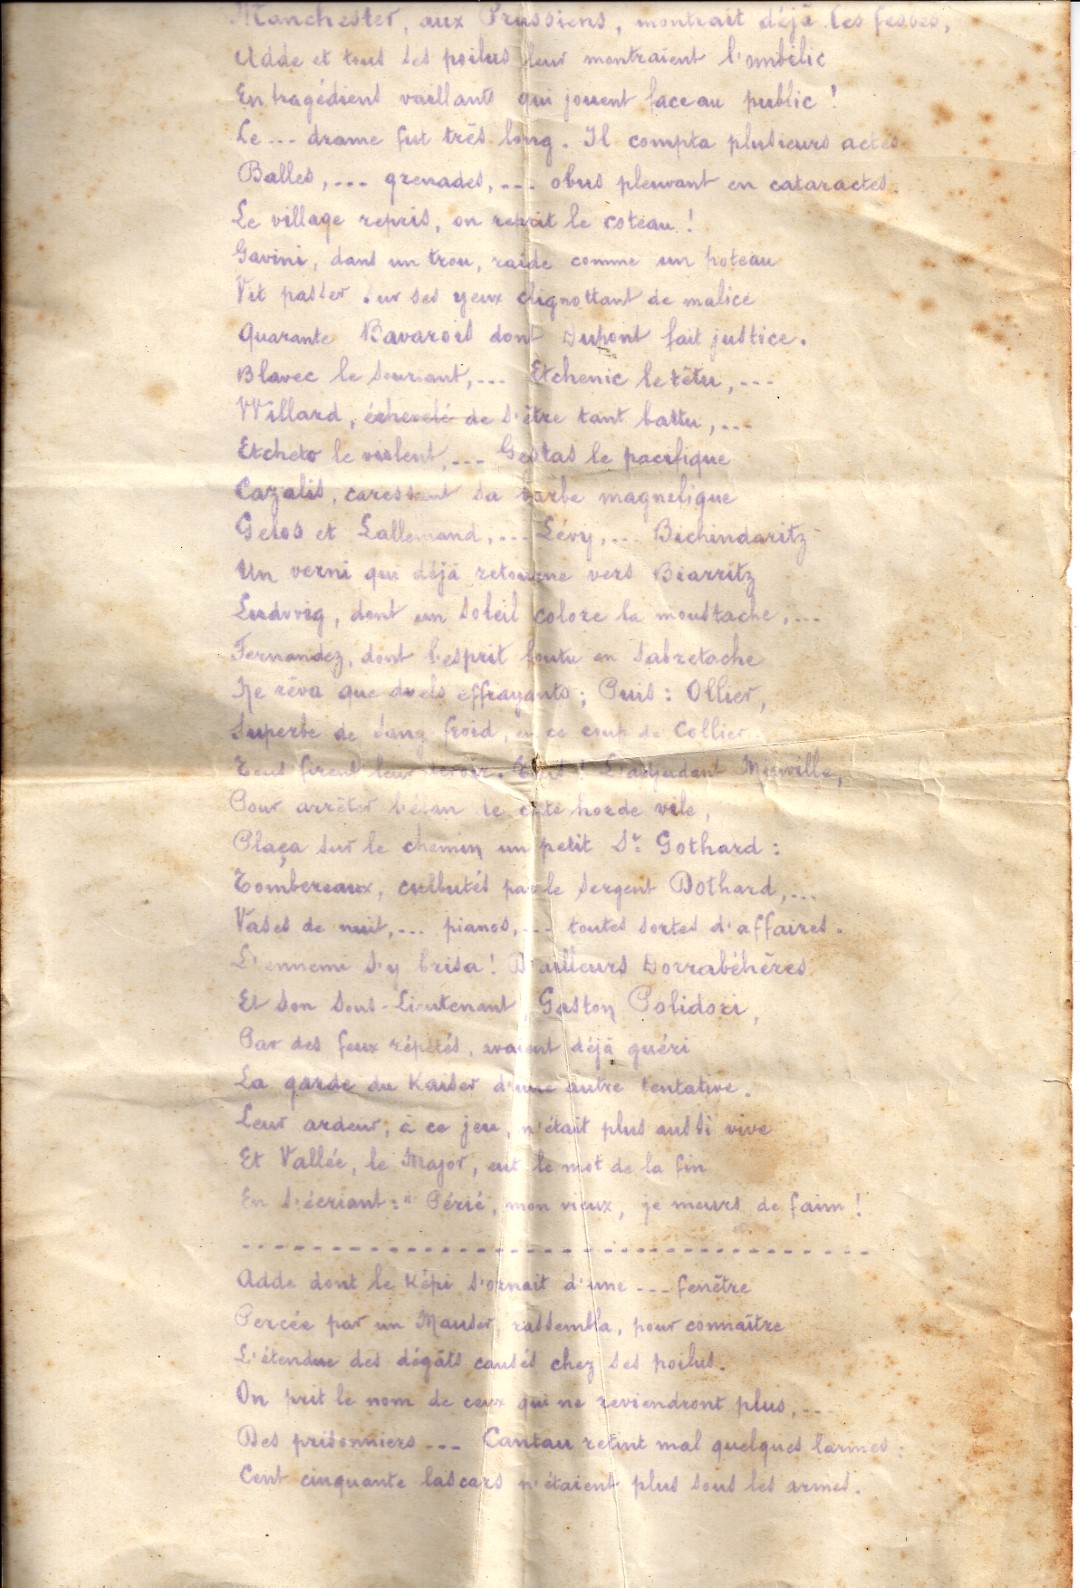 Manchester, aux Prussiens, montrait déjà les fesses,
Adde et tous ses poilus leur montraient l'ombilic
En tragédiens vaillants qui jouent face au public !
Le --- drame fut très long. Il compta plusieurs actes
Balles, --- grenades, --- obus pleuvant en cataractes.
Le village repris, on reprit le coteau !
Gavini, dans un trou, raide comme un poteau
Vit passer sur ses yeux clignottant de malice
Quarante Bavarois dont Dupont fait justice.
Blavec le souriant, --- Etchenic le têtu, ---
Willard, de s'être tant battu, ---
Etcheto le violent, --- Gestas le pacifique
Cazalis, caressant sa barbe magnétique
Gelos et Lallemand, --- Lévy, --- Bichindaritz
Un verni qui déjà retourne vers Biarritz
Ludwig, dont un soleil colore la moustache, ---
Fernandez, dont l'esprit foutu en sabretache
Ne rêva que duels effrayants ; Puis : Ollier,
Superbe de sang froid, en ce coup de Collier.
Tous firent leur devoir. L'adjudant Mierville,
Pour arrêter l'élan de cette horde vile,
Plaça sur le chemin un petit St Gothard :
Tombereaux, culbutés par le sergent Dothard, ---
Vases de nuit, --- pianos, --- toutes sortes d'affaires.
L'ennemi s'y brisa ! D'ailleurs Dorrabéhères
Et son Sous-Lieutenant, Gaston Polidori,
Par des feux répétés, avaient déjà guéri
La garde du Kaiser d'une autre tentative.
Leur ardeur, à ce jeu, n'était plus aussi vive
Et Vallée, le Major, eut le mot de la fin
En s'écriant : " Périé, mon vieux, je meurs de faim !
Adde dont le Képi s'ornait d'une --- fenêtre
Percée par un Mauser, rassembla, pour connaître
L'étendue des dégâts causés chez ses poilus.
On prit le nom de ceux qui ne reviendront plus, ---
Des prisonniers --- Cantau retint mal quelques larmes :
Cent cinquante lascars n'étaient plus sous les armes.